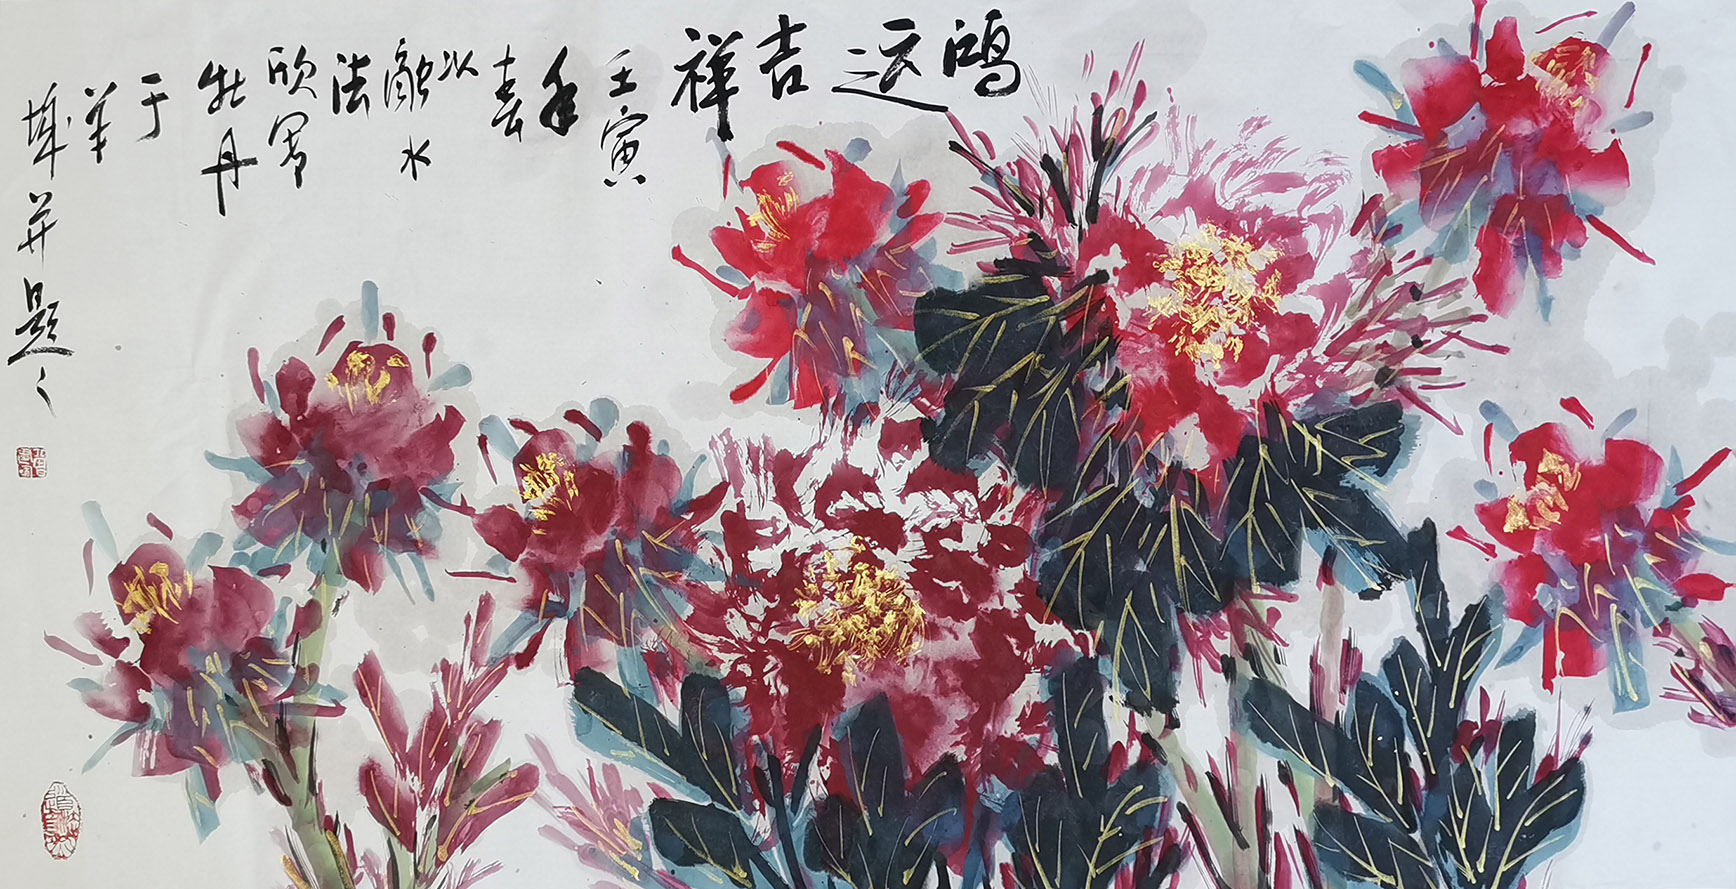 鸿运吉祥
壬寅
年
以
水
法
欣写
牡丹
于
羊
城并题之